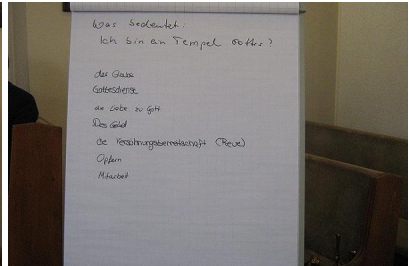 Was bedeutet:
Ich bin ein Tempel Gottes?
der Glaube
Gottesdienste
die Liebe zu Gott
Das Gebet
die Versöhnungsbereitschaft (Reue)
Opfern
Mitarbeit